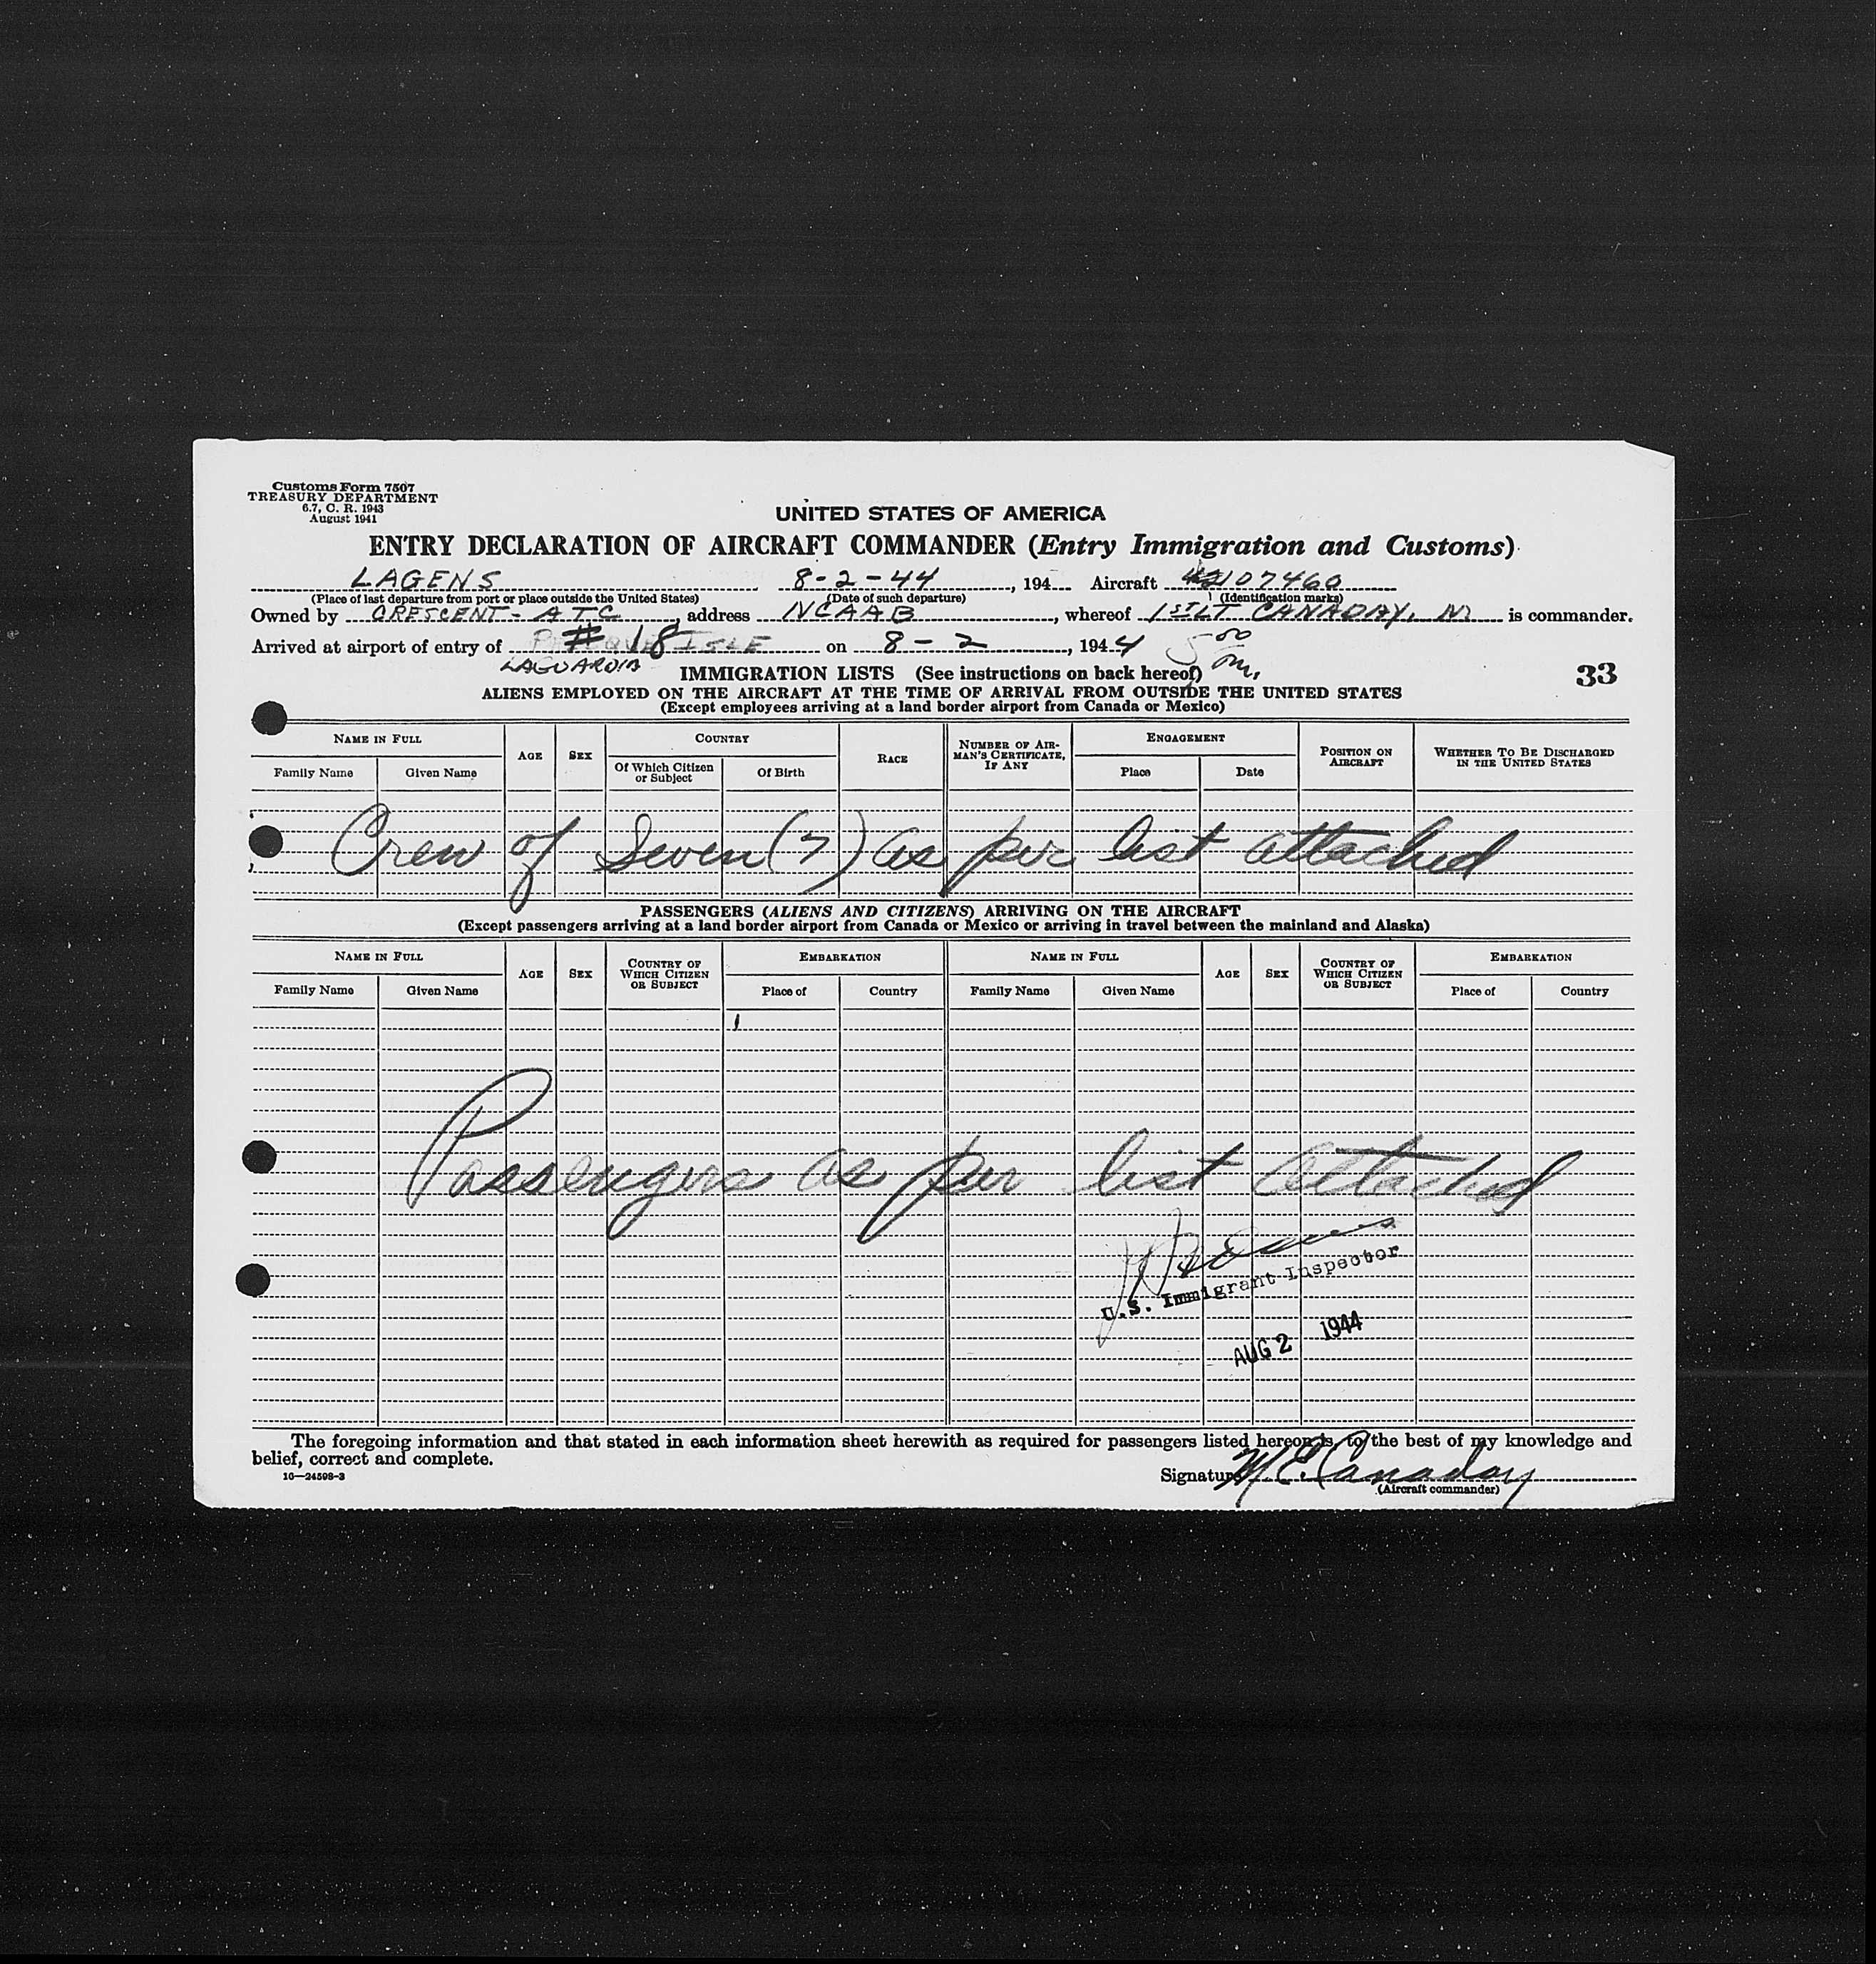 Customs Form 7507
TREASURY DEPARTMENT
6.7, C. R. 1943
August 1941
UNITED STATES OF AMERICA
ENTRY DECLARATION OF AIRCRAFT COMMANDER (Entry Immigration and Customs)
LAGENS 8-2-44, 194 Aircraft 42107460
(Place of last departure from port or place outside the United States) (Date of such departure) (Identification marks)
Owned by CRESCENT - ATC, address NCAAB, whereof 1ST LT CANADAY, M is commander.
Arrived at airport of entry of # 18 on 8-2, 1944 5 00
LAGUARDIA
IMMIGRATION LISTS (See instructions on back hereof)
33
ALIENS EMPLOYED ON THE AIRCRAFT AT THE TIME OF ARRIVAL FROM OUTSIDE THE UNITED STATES
(Except employees arriving at a land border airport from Canada or Mexico)
NAME IN FULL AGE SEX COUNTRY RACE NUMBER OF AIRMAN'S CERTIFICATE, IF ANY ENGAGEMENT POSITION ON AIRCRAFT WHETHER TO BE DISCHARGED IN THE UNITED STATES
Family Name Given Name Of Which Citizen or Subject Of Birth Place Date
Crew of Seven (7) as per list attached
PASSENGERS (ALIENS AND CITIZENS) ARRIVING ON THE AIRCRAFT
(Except passengers arriving at a land border airport from Canada or Mexico or arriving in travel between the mainland and Alaska)
NAME IN FULL AGE SEX COUNTRY OF WHICH CITIZEN OR SUBJECT EMBARKATION NAME IN FULL AGE SEX COUNTRY OF WHICH CITIZEN OR SUBJECT EMBARKATION
Family Name Given Name Place of Country Family Name Given Name Place of Country
Passengers as per list attached
U.S. Immigrant Inspector
AUG 2 1944
The foregoing information and that stated in each information sheet herewith as required for passengers listed hereon is, to the best of my knowledge and
belief, correct and complete.
16—24598-3
Signature M E Canaday
(Aircraft commander)